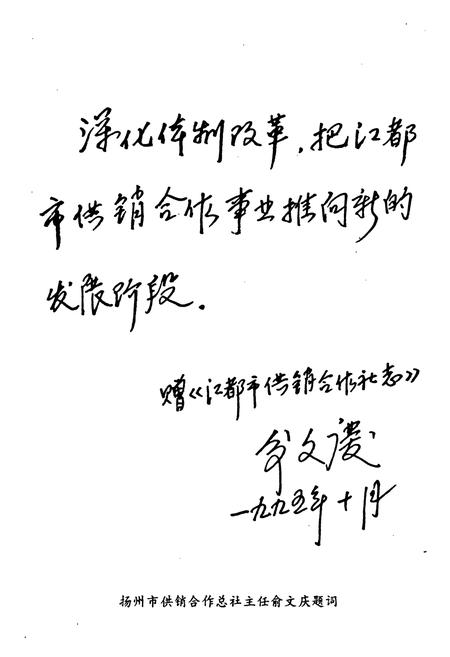 深化体制改革，把江都
市供销合作事业推向新的
发展阶段。
赠《江都市供销合作社志》
俞文慶
一九九五年十月
扬州市供销合作总社主任俞文庆题词